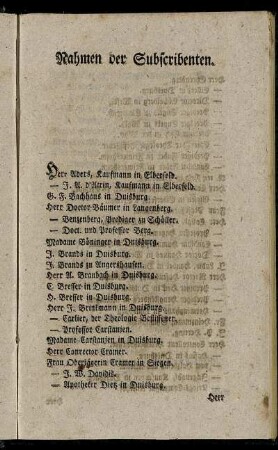 Nahmen der Subscribenten.
Herr Aders, Kaufmann in Elberfeld.
— J. A. d'Alein, Kaufmann in Elberfeld.
G. F. Backhaus in Duisburg.
Herr Doctor Bäumer in Langenberg.
— Benzenberg, Prediger zu Schöller.
— Doct. und Professor Berg.
Madame Böninger in Duisburg.
J. Brands in Duisburg.
J. Brands zu Angershausen.
Herr A. Bransbach in Duisburg.
C. Bresser in Duisburg.
H. Bresser in Duisburg.
Herr J. Brinkmann in Duisburg.
— Carlier, der Theologie Beflissener.
— Professor Carstanjen.
Madame Carstanjen in Duisburg.
Herr Conrector Cramer.
Frau Oberjägerin Cramer in Siegen.
— J. W. Davidis.
— Apotheker Dietz in Duisburg.
Herr